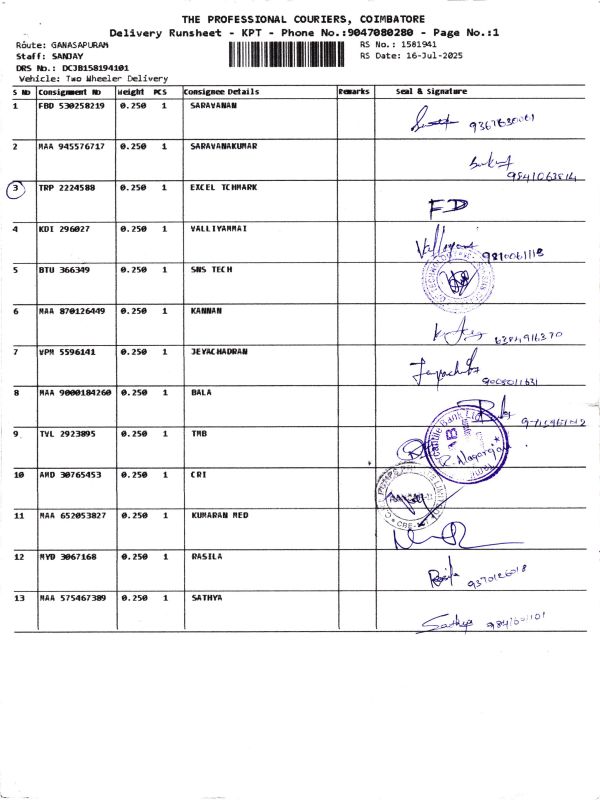 THE PROFESSIONAL COURIERS, COIMBATORE
Delivery Runsheet - KPT - Phone No.:9047080280 - Page No.:1
Route: GANASAPURAM
RS No.: 1581941
Staff: SANJAY
RS Date: 16-Jul-2025
DRS No.: DCJB158194101
Vehicle: Two Wheeler Delivery
S No Consignment No Weight PCS Consignee Details Remarks Seal & Signature
1 FBD 530258219 0.250 1 SARAVANAN
2 MAA 945576717 0.250 1 SARAVANAKUMAR
3 TRP 2224588 0.250 1 EXCEL TCHMARK FD
4 KDI 296027 0.250 1 VALLIYAMMAI
5 BTU 366349 0.250 1 SNS TECH
6 MAA 870126449 0.250 1 KANNAN
7 VPM 5596141 0.250 1 JEYACHADRAN
8 MAA 9000184260 0.250 1 BALA
9 TVL 2923895 0.250 1 TMB
10 AMD 30765453 0.250 1 CRI
11 MAA 652053827 0.250 1 KUMARAN MED
12 MYD 3067168 0.250 1 RASILA
13 MAA 575467389 0.250 1 SATHYA Sathya